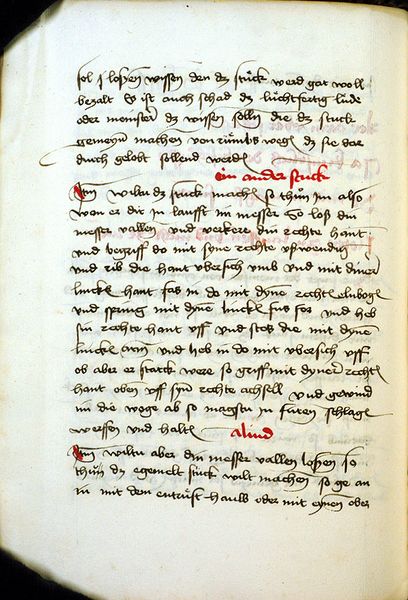 sol j lossen wissen den dz stuck werd gar woll
bezalt Es ist auch schad dz lüchtfertig lüde
oder menster dz wissen sollen die dz stuck
gemeyn machen von rumbs wegen dz sie dar
durch gelobt sollend werden
ein ander stuck
Item wiltu dz stuck machen so thun im also
wan er dir in laufft im messer So loß din
messer vallen und verkere din rechte hant
und begriff do mit syne rechte uswendig
und rib die hant ubersich umb und mit diner
lincken hant fas in do mit dyne rechten elnbogen
und spring mit dyne lincken fus for und heb
sin rechte hant uff und stos die mit dyne
lincken arm und heb in do mit ubersich uff
ob aber er starck were so griff mit dyner rechten
hant oben uff syn rechte achsell und gewind
im die woge ab so magstu in füren schlagen
werffen und halten Aliud
Item wiltu aber din messer vallen lossen so
thun dz egemelt stuck wilt machen so ge an
in mit dem entrust hauw oder mit eynen ober